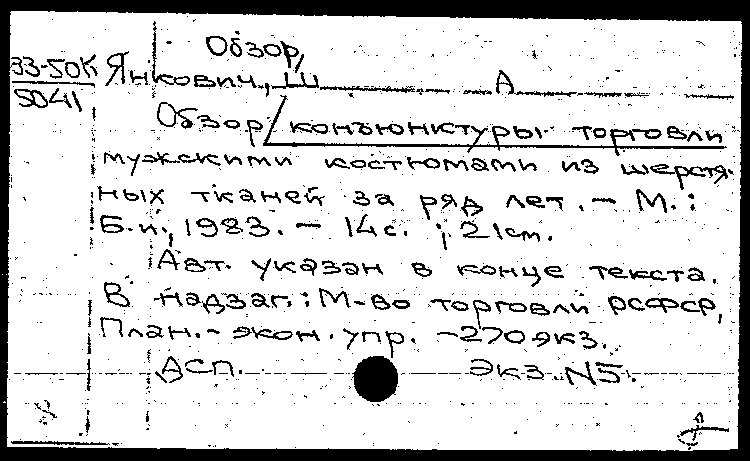 Обзор,
33-50К Янкович, Ш А
5041
Обзор конъюнктуры торговли
мужскими костюмами из шерстя-
ных тканей за ряд лет. - М.:
Б.и., 1983. - 14с. ; 21см.
Авт. указан в конце текста.
В надзаг.: М-во торговли РСФСР,
План.-экон. упр. -270экз.
ДСП. Экз. N5.